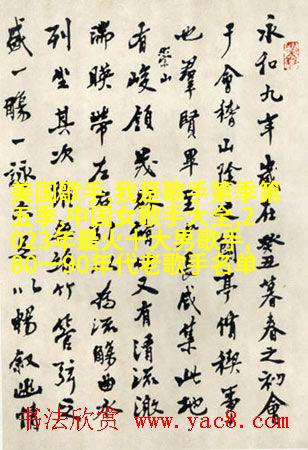 永和九年歲在癸丑暮春之初會
于會稽山陰亭脩禊事
也羣賢畢至咸集此地
有崇山峻領茂又有清流激
湍暎帶左右為流觴曲水
列坐其次竹管弦之
盛一觴一詠以暢敘幽情
美国歌手,我是歌手第季第
五季,中国女歌手大全,2
023年最火十大男歌手,
80—90年代老歌手名单
书法欣赏 www.yac8.com